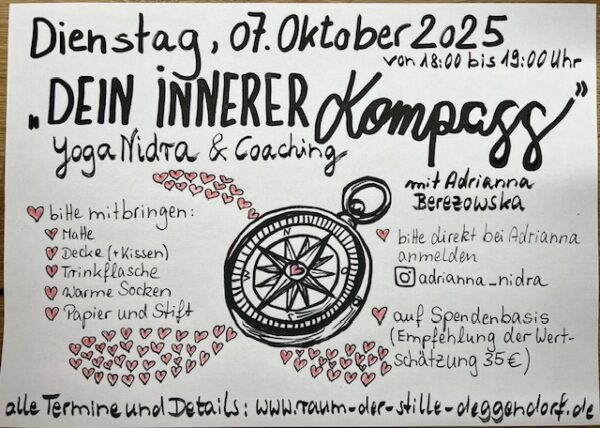 Dienstag, 07. Oktober 2025
von 18:00 bis 19:00 Uhr
„DEIN INNERER Kompass"
Yoga Nidra & Coaching
mit Adrianna
Berezowska
bitte mitbringen:
Matte
Decke (+Kissen)
Trinkflasche
Warme Socken
Papier und Stift
N
bitte direkt bei Adrianna
anmelden
adrianna_nidra
auf Spendenbasis
(Empfehlung der Wert-
schätzung 35€)
alle Termine und Details: www.raum-der-stille-deggendorf.de